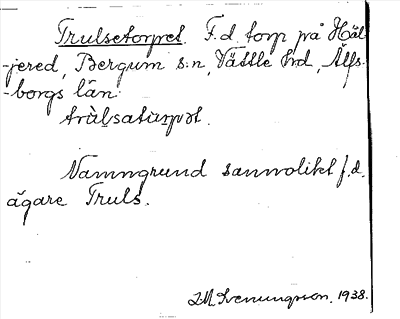 Trulsetorpet. F.d. torp på Häl-
-jered, Bergum s:n, Vättle hd, Älfs-
-borgs län.
trùlsatùrpət.
Namngrund sannolikt f.d.
ägare Truls.
1938.